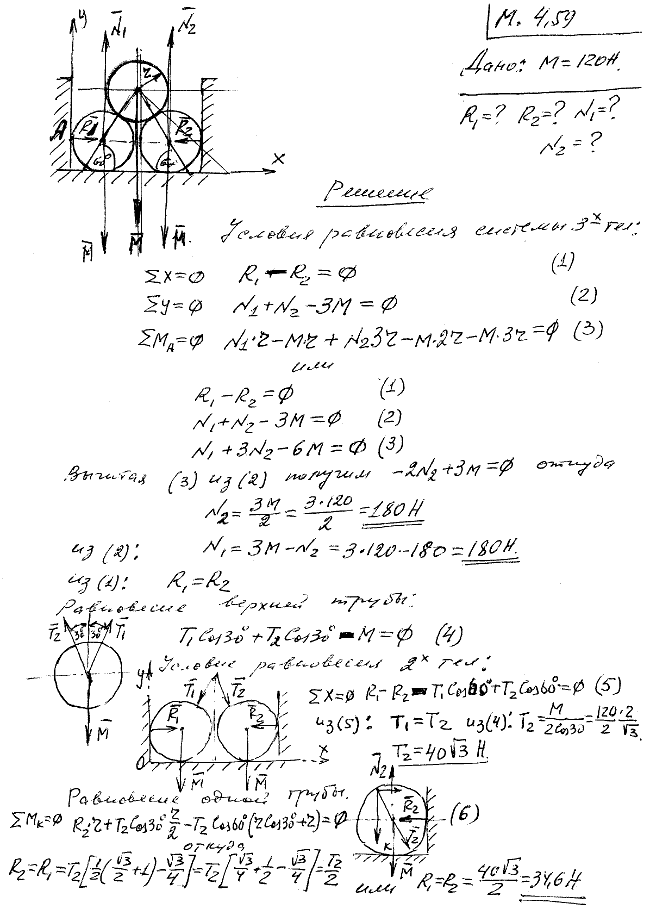 М. 4,59
Дано: M = 120Н.
R₁=? R₂=? N₁=?
N₂=?
y N̄₁ N̄₂
r
A R̄₁ R̄₂
60° 60° x
M̄ M̄ M̄
Решение
Условия равновесия системы 3ˣ тел:
ΣX=0 R₁ - R₂ = 0 (1)
ΣY=0 N₁+N₂-3M = 0 (2)
ΣM_A=0 N₁·r-M·r + N₂3r-M·2r-M·3r=0 (3)
или
R₁-R₂=0 (1)
N₁+N₂-3M=0 (2)
N₁+3N₂-6M=0 (3)
Вычитая (3) из (2) получим -2N₂+3M=0 откуда
N₂ = 3M/2 = 3·120/2 = 180Н
из (2): N₁=3M-N₂ = 3·120-180=180Н.
из (1): R₁=R₂
Равновесие верхней трубы:
T̄₂ 30° 30° T̄₁
T₁Cos30°+T₂Cos30°-M=0 (4)
M̄
Условие равновесия 2ˣ тел:
y T̄₁ T̄₂
R̄₁ R̄₂
0 x
M̄ M̄
ΣX=0 R₁-R₂-T₁Cos60°+T₂Cos60°=0 (5)
из(5): T₁=T₂ из(4): T₂=M/2Cos30=120·2/2√3.
T₂=40√3 Н.
Равновесие одной трубы.
ΣMк=0 R₂·r+T₂Cos30°r/2-T₂Cos60°(rCos30°+r)=0 (6)
N̄₂
R̄₂
T̄₂
к
M̄
откуда
R₂=R₁=T₂[1/2(√3/2+1)-√3/4]=T₂[√3/4+1/2-√3/4]=T₂/2
или R₁=R₂=40√3/2=34,6Н